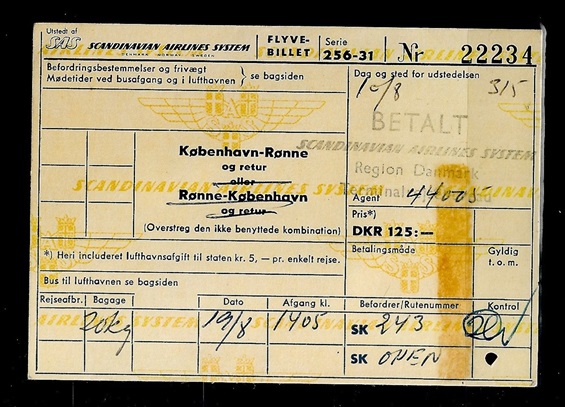 Udstedt af
SAS SCANDINAVIAN AIRLINES SYSTEM
DENMARK NORWAY SWEDEN
FLYVE-
BILLET
Serie
256-31
Nr 22234
Befordringsbestemmelser og frivægt
Mødetider ved busafgang og i lufthavnen } se bagsiden
Dag og sted for udstedelsen
10/8 315
BETALT
SCANDINAVIAN AIRLINES SYSTEM
Region Danmark
København-Rønne
og retur
eller
Rønne-København
og retur
(Overstreg den ikke benyttede kombination)
Agent 44005
Pris*)
DKR 125:—
*) Heri includeret lufthavnsafgift til staten kr. 5,— pr. enkelt rejse.
Betalingsmåde
Gyldig
t. o. m.
Bus til lufthavnen se bagsiden
Rejseafbr. Bagage Dato Afgang kl. Befordrer/Rutenummer Kontrol
20kg 19/8 1405 SK 243
SK OPEN